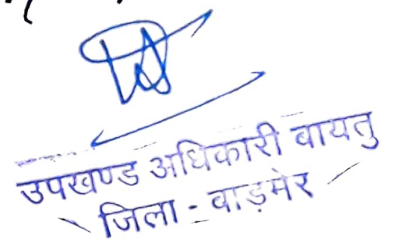 उपखण्ड अधिकारी बायतु
जिला - बाड़मेर